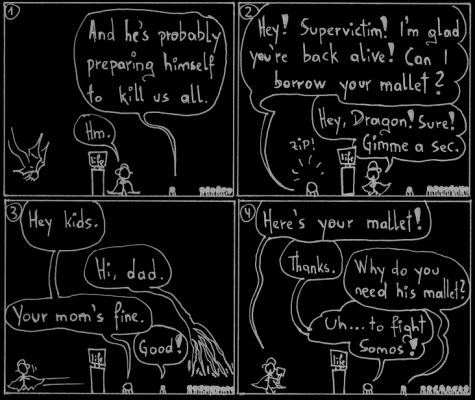 1
And he's probably
preparing himself
to kill us all.
Hm.
life
2
Hey! Supervictim! I'm glad
you're back alive! Can I
borrow your mallet?
Hey, Dragon! Sure!
Gimme a sec.
ZIP!
life
3
Hey kids.
Hi, dad.
Your mom's fine.
Good!
life
4
Here's your mallet!
Thanks.
Why do you
need his mallet?
Uh... to fight
Somos!
life